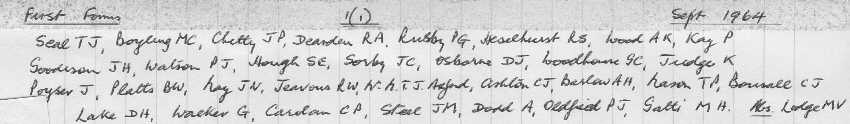 First Forms 1(1) Sept 1964
Seal TJ, Boyling MC, Chetty JP, Dearden RA, Rusby PG, Heselhurst RS, Wood AK, Kay P
Goodison JH, Watson PJ, Hough SE, Sorby JC, Osborne DJ, Woodhouse GC, Judge K
Poyser J, Platts BW, Kay JN, Jeavons RW, Mr. T.J. Axford, Ashton CJ, Barlow AH, Mason TP, Bonsall CJ
Lake DH, Walker G, Carolan CP, Steel JM, Dodd A, Oldfield PJ, Galli MH. Abs. Lodge MV